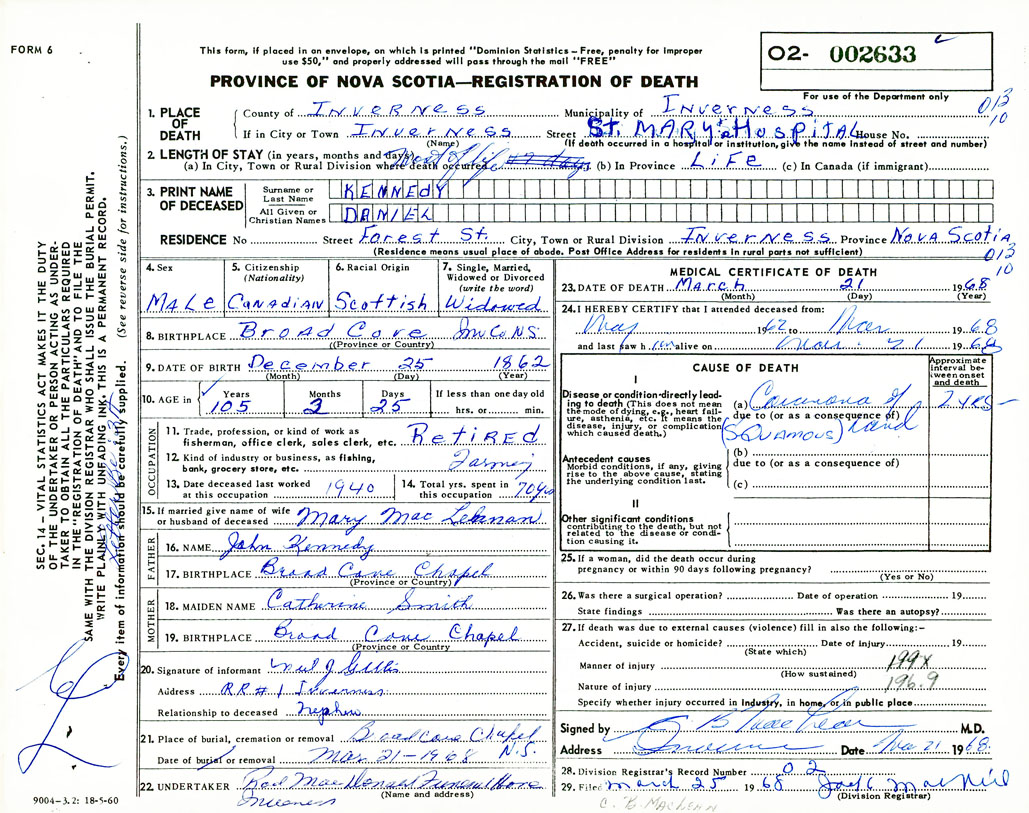 FORM 6
This form, if placed in an envelope, on which is printed "Dominion Statistics – Free, penalty for improper
use $50," and properly addressed will pass through the mail "FREE"
PROVINCE OF NOVA SCOTIA—REGISTRATION OF DEATH
O2- 002633
For use of the Department only
013
10
1. PLACE OF DEATH
County of Inverness Municipality of Inverness
If in City or Town Inverness Street St. MARY'S HOSPITAL House No.
(Name) (If death occurred in a hospital or institution, give the name instead of street and number)
2. LENGTH OF STAY (in years, months and days)
(a) In City, Town or Rural Division where death occurred Most of life (b) In Province LiFe (c) In Canada (if immigrant)
3. PRINT NAME OF DECEASED
Surname or Last Name KENNEDY
All Given or Christian Names DANIEL
RESIDENCE No Street Forest St. City, Town or Rural Division Inverness Province Nova Scotia
(Residence means usual place of abode. Post Office Address for residents in rural parts not sufficient)
013
10
4. Sex
Male
5. Citizenship (Nationality)
Canadian
6. Racial Origin
Scottish
7. Single, Married, Widowed or Divorced (write the word)
Widowed
8. BIRTHPLACE Broad Cove Inv Co N.S.
(Province or Country)
9. DATE OF BIRTH December 25 1862
(Month) (Day) (Year)
10. AGE in Years Months Days If less than one day old
105 2 25 hrs. or min.
OCCUPATION
11. Trade, profession, or kind of work as fisherman, office clerk, sales clerk, etc. Retired
12. Kind of industry or business, as fishing, bank, grocery store, etc. Farming
13. Date deceased last worked at this occupation 1940
14. Total yrs. spent in this occupation 70 yrs
15. If married give name of wife or husband of deceased Mary Mac Lennan
FATHER
16. NAME John Kennedy
17. BIRTHPLACE Broad Cove Chapel
(Province or Country)
MOTHER
18. MAIDEN NAME Catherine Smith
19. BIRTHPLACE Broad Cove Chapel
(Province or Country)
20. Signature of informant Neil J Gillis
Address RR # 1 Inverness
Relationship to deceased nephew
21. Place of burial, cremation or removal Broad Cove Chapel N.S.
Date of burial or removal Mar 21-1968
22. UNDERTAKER Rod MacDonald Funeral Home
Inverness
(Name and address)
MEDICAL CERTIFICATE OF DEATH
23. DATE OF DEATH March 21 1968
(Month) (Day) (Year)
24. I HEREBY CERTIFY that I attended deceased from:
May 1962 to Mar 1968
and last saw h im alive on Mar. 21 1968
CAUSE OF DEATH
Approximate interval between onset and death
I
Disease or condition directly leading to death (This does not mean the mode of dying, e.g., heart failure, asthenia, etc. It means the disease, injury, or complication which caused death.)
(a) Carcinoma of 2 yrs
due to (or as a consequence of)
(SQUAMOUS) hand
Antecedent causes
Morbid conditions, if any, giving rise to the above cause, stating the underlying condition last.
(b)
due to (or as a consequence of)
(c)
II
Other significant conditions
contributing to the death, but not related to the disease or condition causing it.
25. If a woman, did the death occur during
pregnancy or within 90 days following pregnancy?
(Yes or No)
26. Was there a surgical operation? Date of operation 19
State findings Was there an autopsy?
27. If death was due to external causes (violence) fill in also the following:–
Accident, suicide or homicide? Date of injury 19
(State which)
Manner of injury 199x
(How sustained)
Nature of injury 196.9
Specify whether injury occurred in industry, in home, or in public place
Signed by M.D.
Address Inverness Date Mar 21 1968
28. Division Registrar's Record Number 02
29. Filed March 25 1968 Jack MacNeil
(Division Registrar)
C. B. MACLEAN
SEC. 14 – VITAL STATISTICS ACT MAKES IT THE DUTY
OF THE UNDERTAKER OR PERSON ACTING AS UNDER-
TAKER TO OBTAIN ALL THE PARTICULARS REQUIRED
IN THE "REGISTRATION OF DEATH" AND TO FILE THE
SAME WITH THE DIVISION REGISTRAR WHO SHALL ISSUE THE BURIAL PERMIT.
WRITE PLAINLY WITH UNFADING INK. THIS IS A PERMANENT RECORD.
Every item of information should be carefully supplied. (See reverse side for instructions.)
9004–3.2: 18-5-60